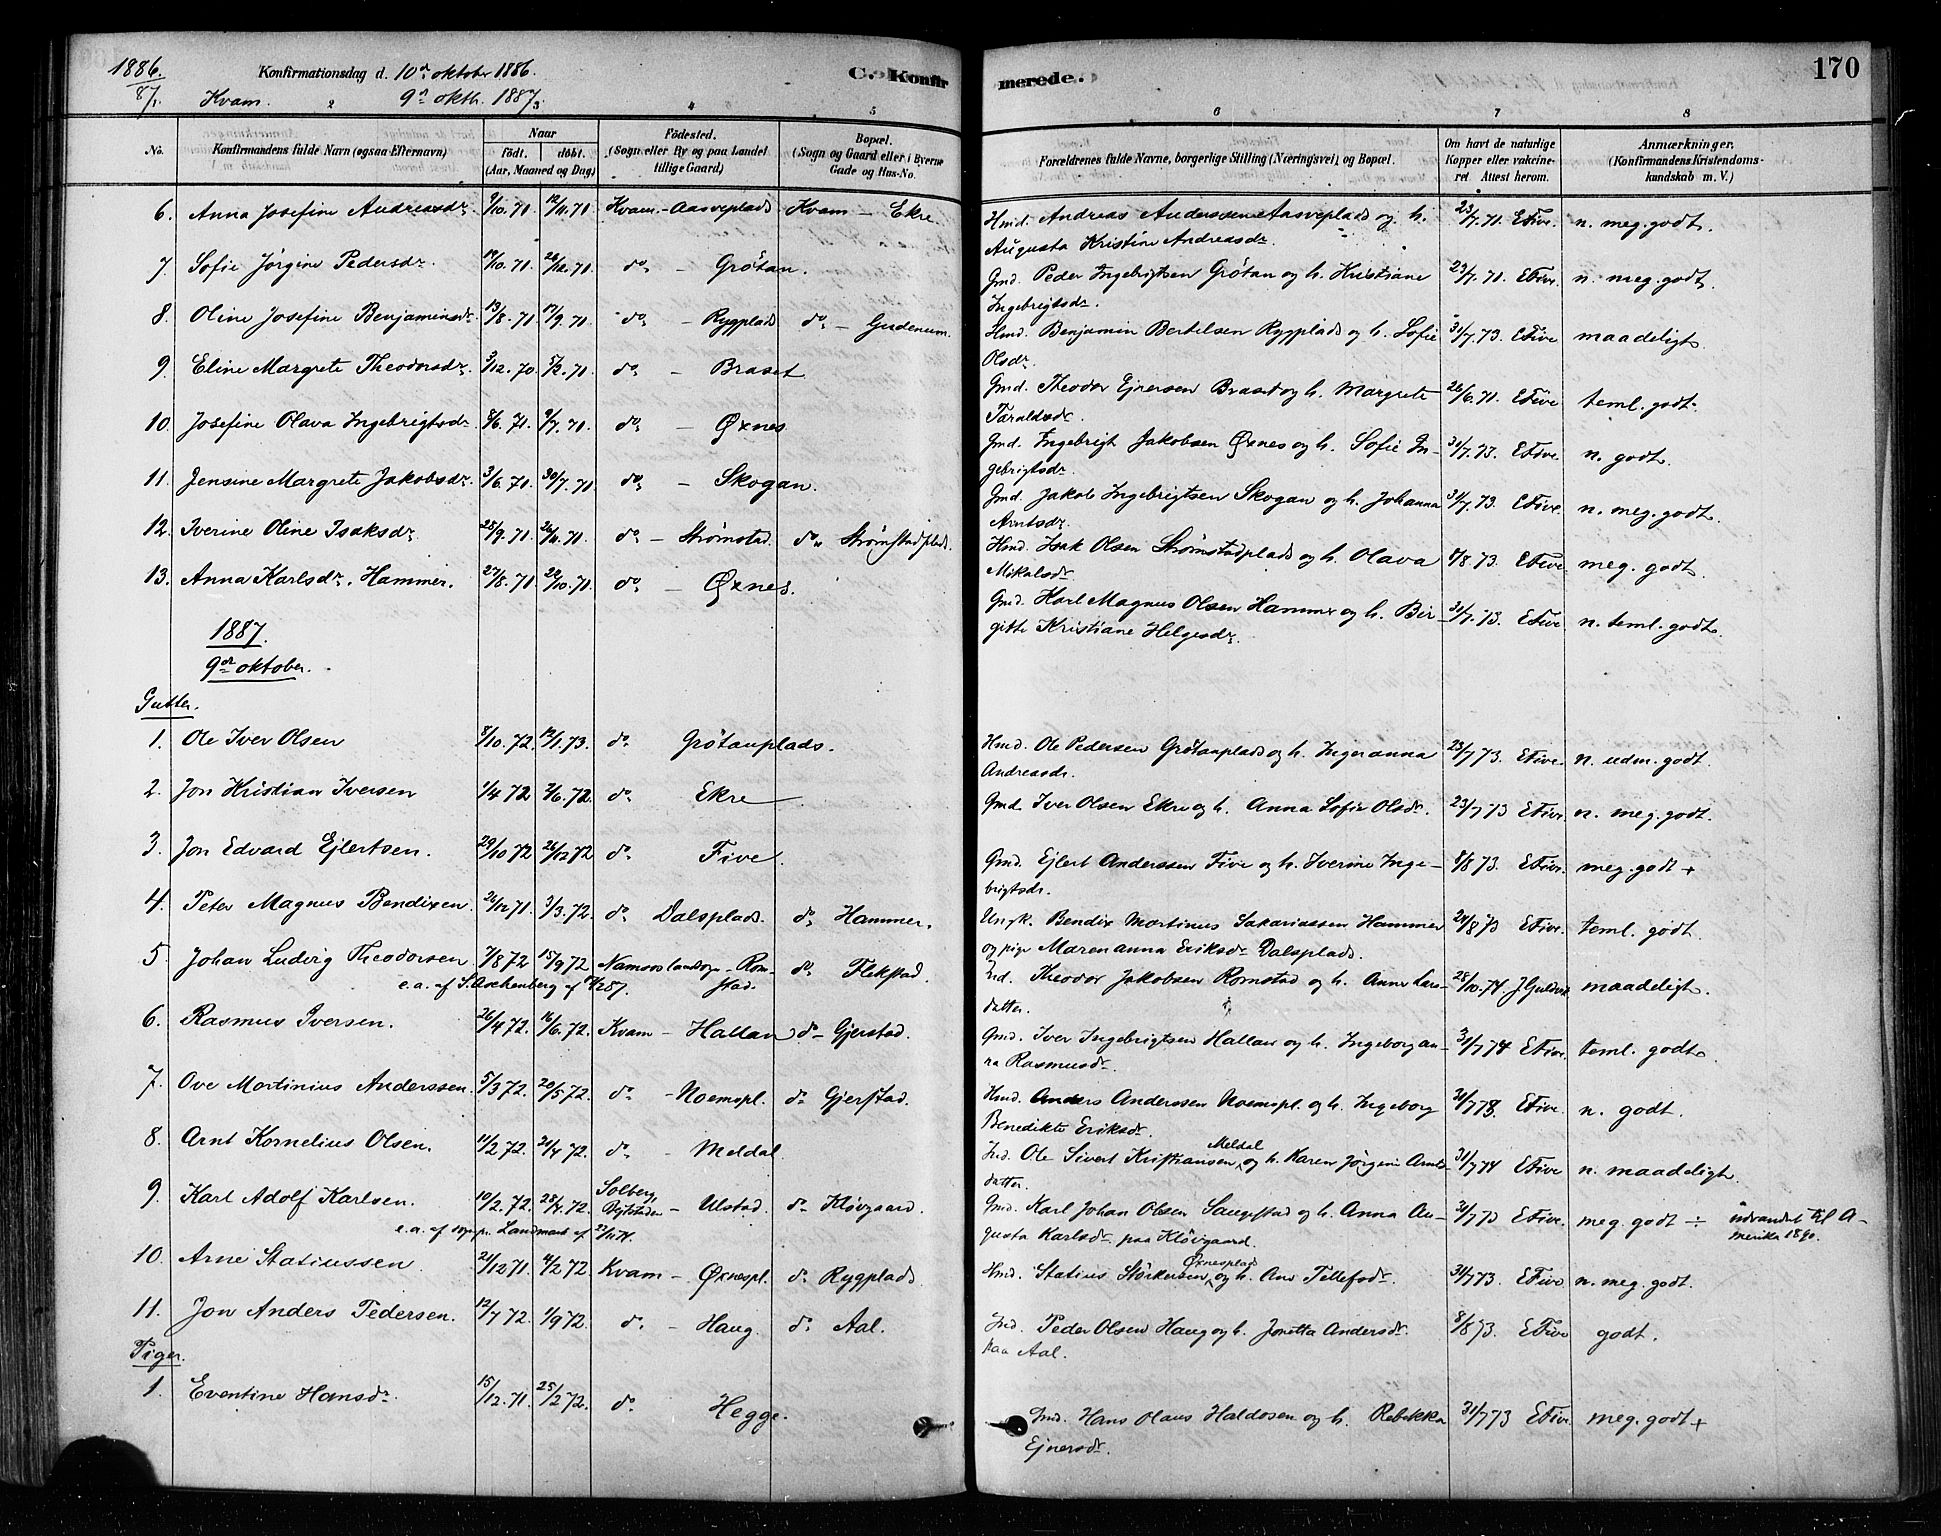 1886.
87/1
Konfirmationsdag d. 10de oktober 1886.
Kvam. 9de oktb. 1887.
C. Konfirmerede.
170
2 3 4 5 6 7 8
No. Konfirmandens fulde Navn (ogsaa Efternavn) Naar født. døbt. (Aar, Maaned og Dag) Fødested. (Sogn eller By og paa Landet tillige Gaard) Bopæl. (Sogn og Gaard eller i Byerne Gade og Hus-No. Forældrenes fulde Navne, borgerlige Stilling (Næringsvei) og Bopæl. Om havt de naturlige Kopper eller vakcineret. Attest herom. Anmærkninger. (Konfirmandens Kristendomskundskab m. V.)
6. Anna Josefine Andreasdr. 9/10.71 12/11.71. Kvam - Aasveplads Kvam - Ekre Hmd. Andreas Anderssen Aasveplads og h. 23/7.71. EFive. n. meg. godt.
Augusta Kristine Andreasdr.
7. Sofie Jørgine Pedersdr. 17/10.71. 26/12.71. do - Grötan. Gmd. Peder Ingebrigtsen Grötan og h. Kristiane 23/7.71. EFive. n. meg. godt.
Ingebrigtsdr.
8. Oline Josefine Benjaminsdr. 13/8.71. 17/9.71. do - Rygplads do - Gudenum. Hmd. Benjamin Bertelsen Rygplads og h. Sofie 31/7.73. EFive maadeligt.
Olsdr.
9. Eline Margrete Theodorsdr. 3/12.70. 5/2.71. do - Braset. Gmd. Theodor Ejnersen Braset og h. Margrete 26/6.71. EFive teml. godt.
Taraldsdr.
10. Josefine Olava Ingebrigtsdr. 8/6.71. 9/7.71. do - Øxnes. Gmd. Ingebrigt Jakobsen Øxnes og h. Sofie In- 31/7.73. EFive. n. godt.
gebrigtsdr.
11. Jensine Margrete Jakobsdr. 3/6.71. 30/7.71. do - Skogan. Gmd. Jakob Ingebrigtsen Skogan og h. Johanna 31/7.73. EFive. n. meg. godt.
Arntsdr.
12. Iverine Oline Isaksdr. 25/9.71. 26/11.71. do - Strømstad. do Strømstadplads. Hmd. Isak Olsen Strømstadplads og h. Olava 8/8.73. EFive. meg. godt.
Mikalsdr.
13. Anna Karlsdr. Hammer. 27/8.71. 22/10.71. do - Øxnes. Gmd. Karl Magnus Olsen Hammer og h. Bir- 31/7.73. EFive. n. teml. godt.
gitte Kristiane Helgesdr.
1887.
9de oktober.
Gutter.
1. Ole Iver Olsen 8/10.72. 12/1.73. do Grötanplads. Hmd. Ole Pedersen Grötanplads og h. Ingeranna 23/7.73. EFive. n. udm. godt.
Andreasdr.
2. Jon Kristian Iversen 1/4 72 2/6.72. do Ekre Gmd. Iver Olsen Ekre og h. Anna Sofie Olsdr. 23/7.73 EFive. n. meg. godt.
3. Jon Edvard Ejlertsen. 29/10 72 26/12 72 do Five. Gmd. Ejlert Anderssen Five og h. Iverine Inge- 8/8 73. EFive. meg. godt +
brigtsdr.
4. Peter Magnus Bendixen 26/12 71. 3/3.72. do Dalsplads. do Hammer. Ungk. Bendix Martinus Sakariassen Hammer 24/8 73 EFive. teml. godt.
og pige Marenanna Eriksdr. Dalsplads.
5. Johan Ludvig Theodorsen 7/8 72 15/9 72 Namsos landsogn - Romstad. do Flekstad. Ind. Theodor Jakobsen Romstad og h. Anne Lars- 28/10.74. J Guldvik maadeligt.
e.a. af S. Aschenberg af
datter.
6. Rasmus Iversen. 26/4 72. 16/6.72. Kvam - Hallan do - Gjerstad. Gmd. Iver Ingebrigtsen Hallan og h. Ingeborgan- 31/7 74 EFive. teml. godt.
na Rasmusdr.
7. Ove Martinius Anderssen. 5/3 72. 20/5 72. do - Noemspl. do Gjerstad. Hmd. Anders Anderssen Noemspl. og h. Ingeborg EFive. n. godt.
Benedikte Eriksdr.
8. Arnt Kornelius Olsen. 11/2 72. 21/4 72. do - Meldal. Ind. Ole Sivert Kristiansen Meldal og h. Karen Jörgine Arnts- 31/7 74 EFive n. maadeligt.
datter.
9. Karl Adolf Karlsen. 10/2.72. 28/4.72. Solberg, Bejtstaden - Ulstad. do Kløvgaard. Gmd. Karl Johan Olsen Saugestad og h. Anna Au- 31/7 73 EFive. meg. godt ÷ udvandret til A-
e.a. af sogepr. Landmark af
gusta Karlsdr. paa Kløvgaard. merika 1890.
10. Arne Statiussen. 21/12 71. 4/2 72. Kvam - Øxnespl. do Rygplads. Hmd. Statius Störkersen Øxnesplads og h. Ane Tellefsdr. 31/7 73. EFive n. meg. godt.
11. Jon Anders Pedersen. 12/7 72. 1/9 72. do - Haug. do Aal. Ind. Peder Olsen Haug og h. Jonetta Andersdr. 8/8 73. EFive godt.
paa Aal.
Piger.
1. Eventine Hansdr. 15/12.71. 25/2 72. do Hegge. Gmd. Hans Olaus Haldosen og h. Rebekka 31/7 73 EFive. meg. godt +
Ejnersdr.